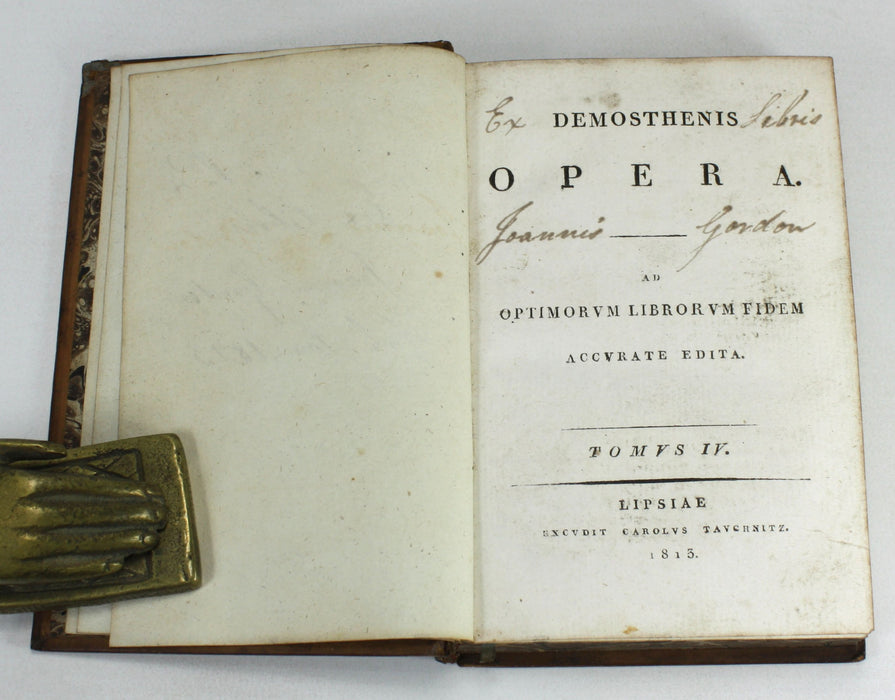 Ex DEMOSTHENIS Libris
OPERA.
Joannis Gordon
AD
OPTIMORVM LIBRORVM FIDEM
ACCVRATE EDITA.
TOMVS IV.
LIPSIAE
EXCVDIT CAROLVS TAVCHNITZ.
1813.